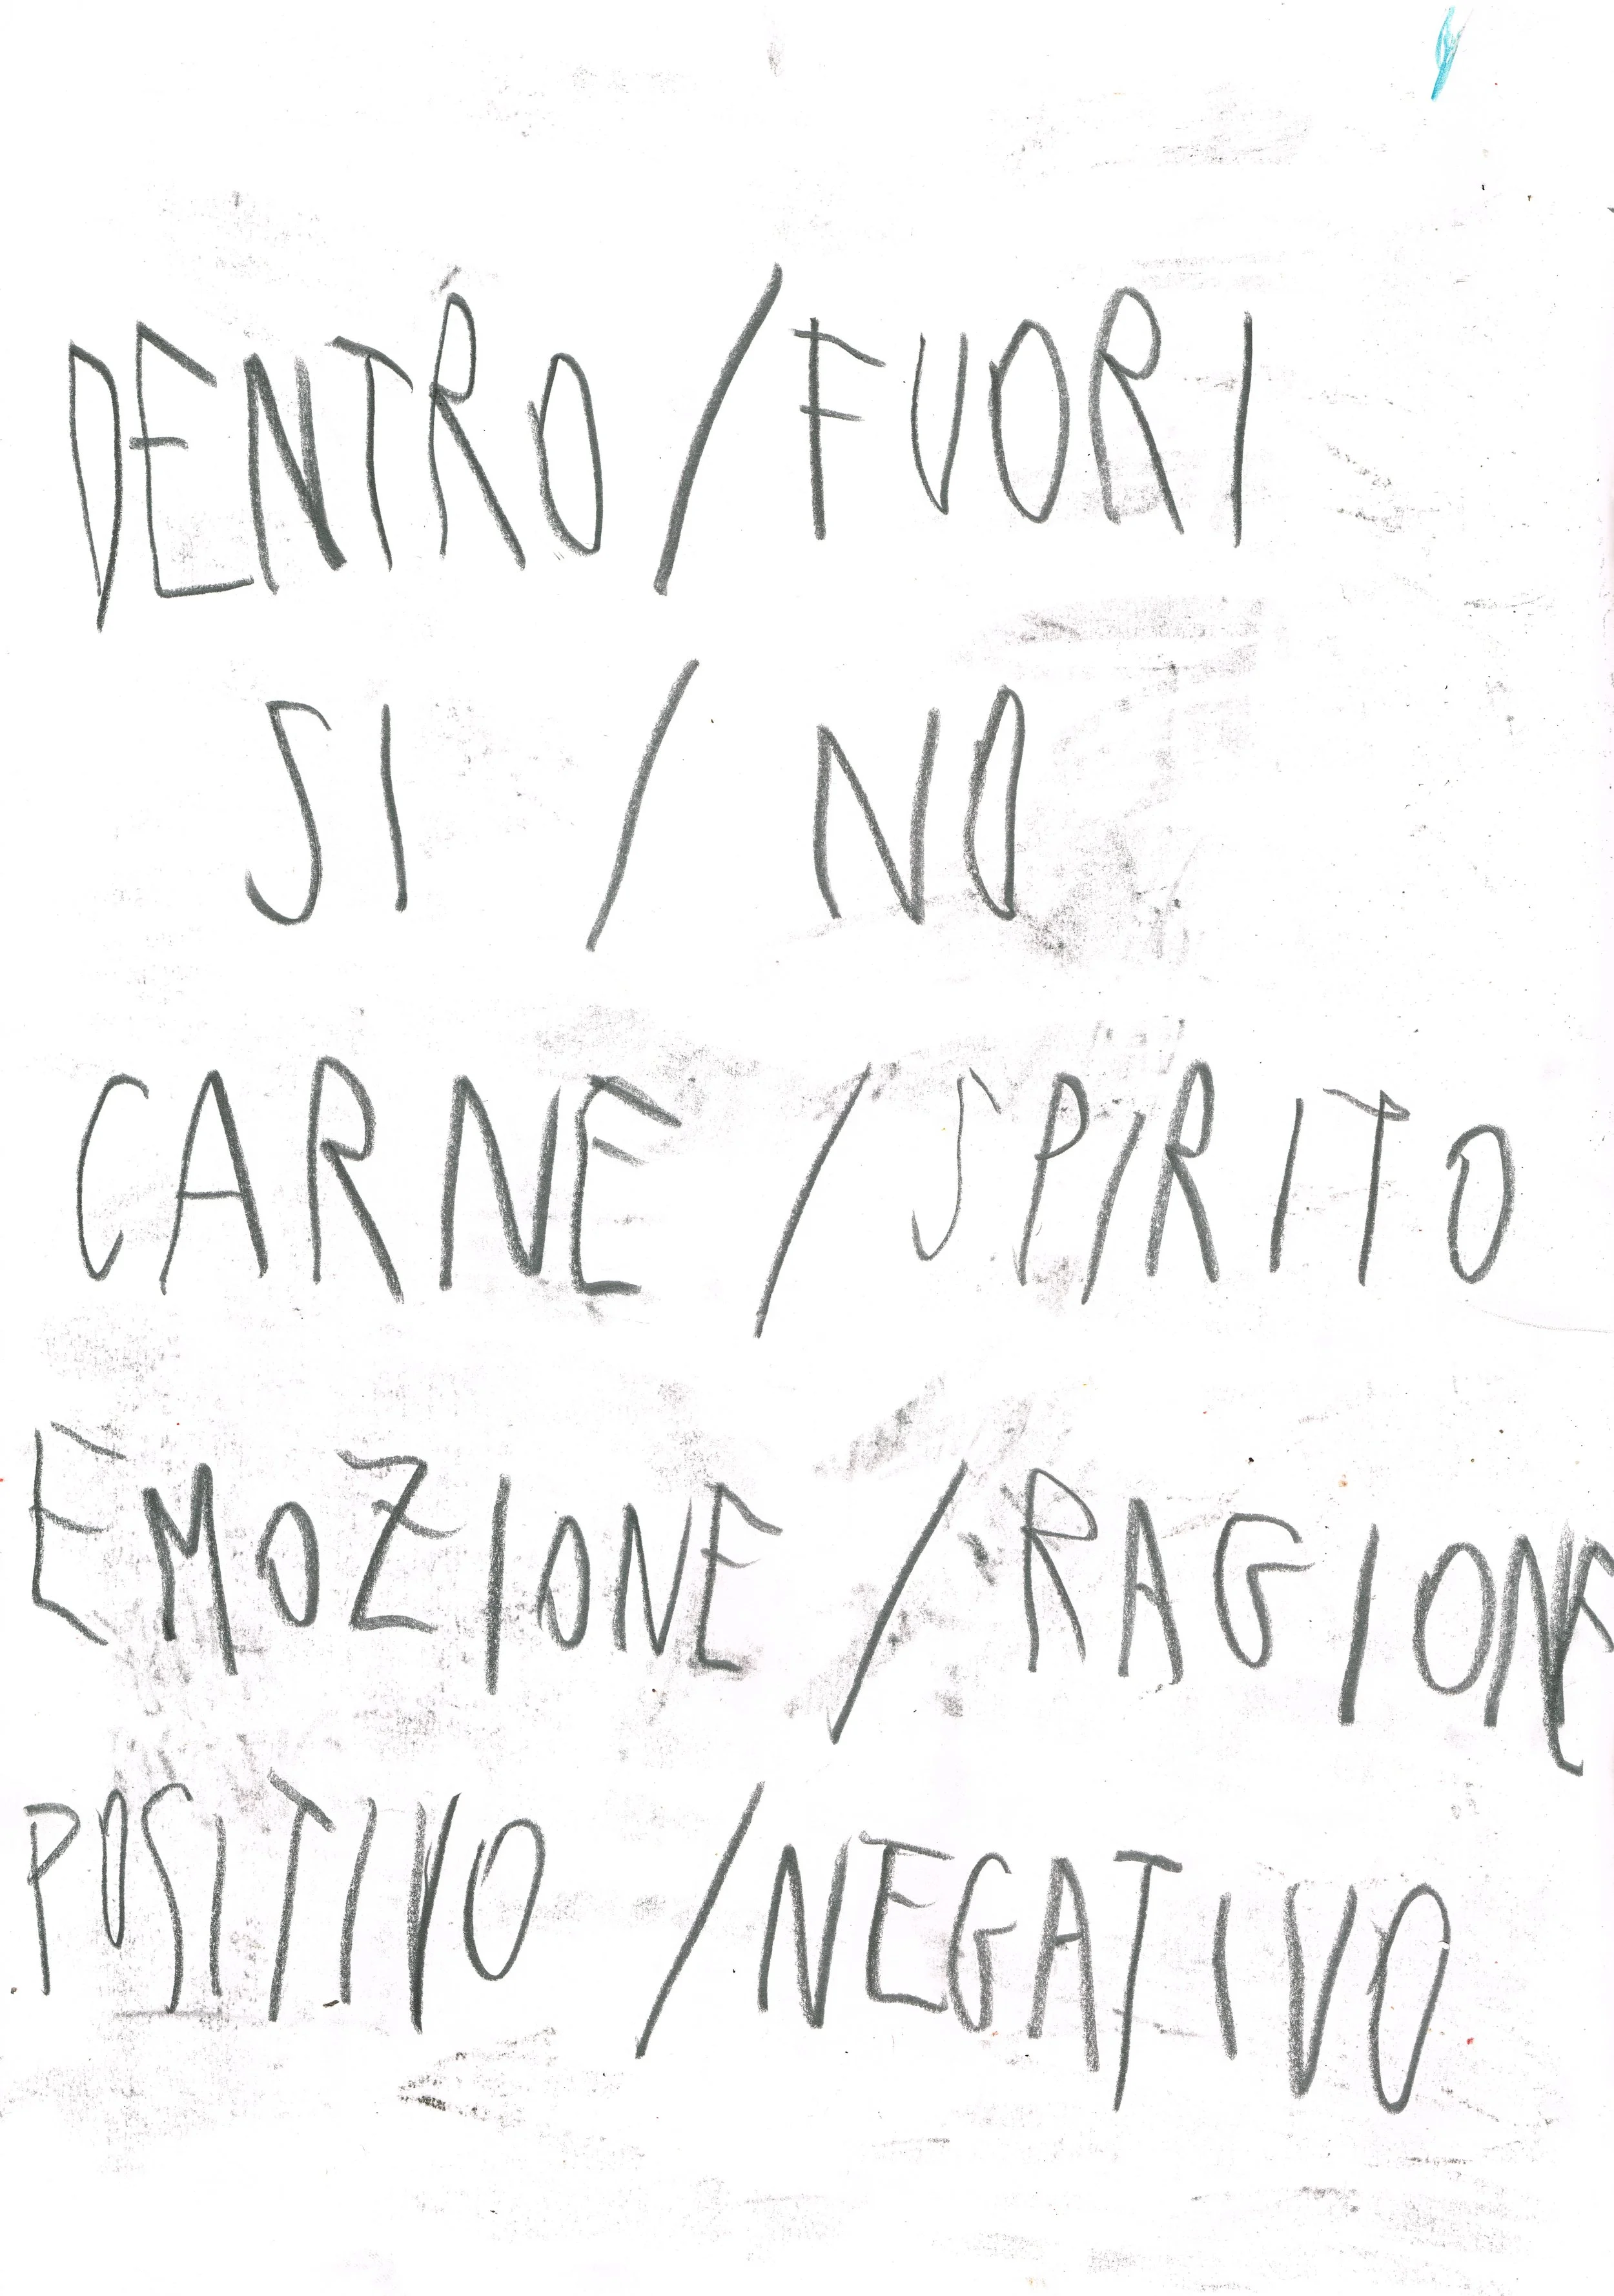 DENTRO / FUORI
SI / NO
CARNE / SPIRITO
EMOZIONE / RAGIONE
POSITIVO / NEGATIVO